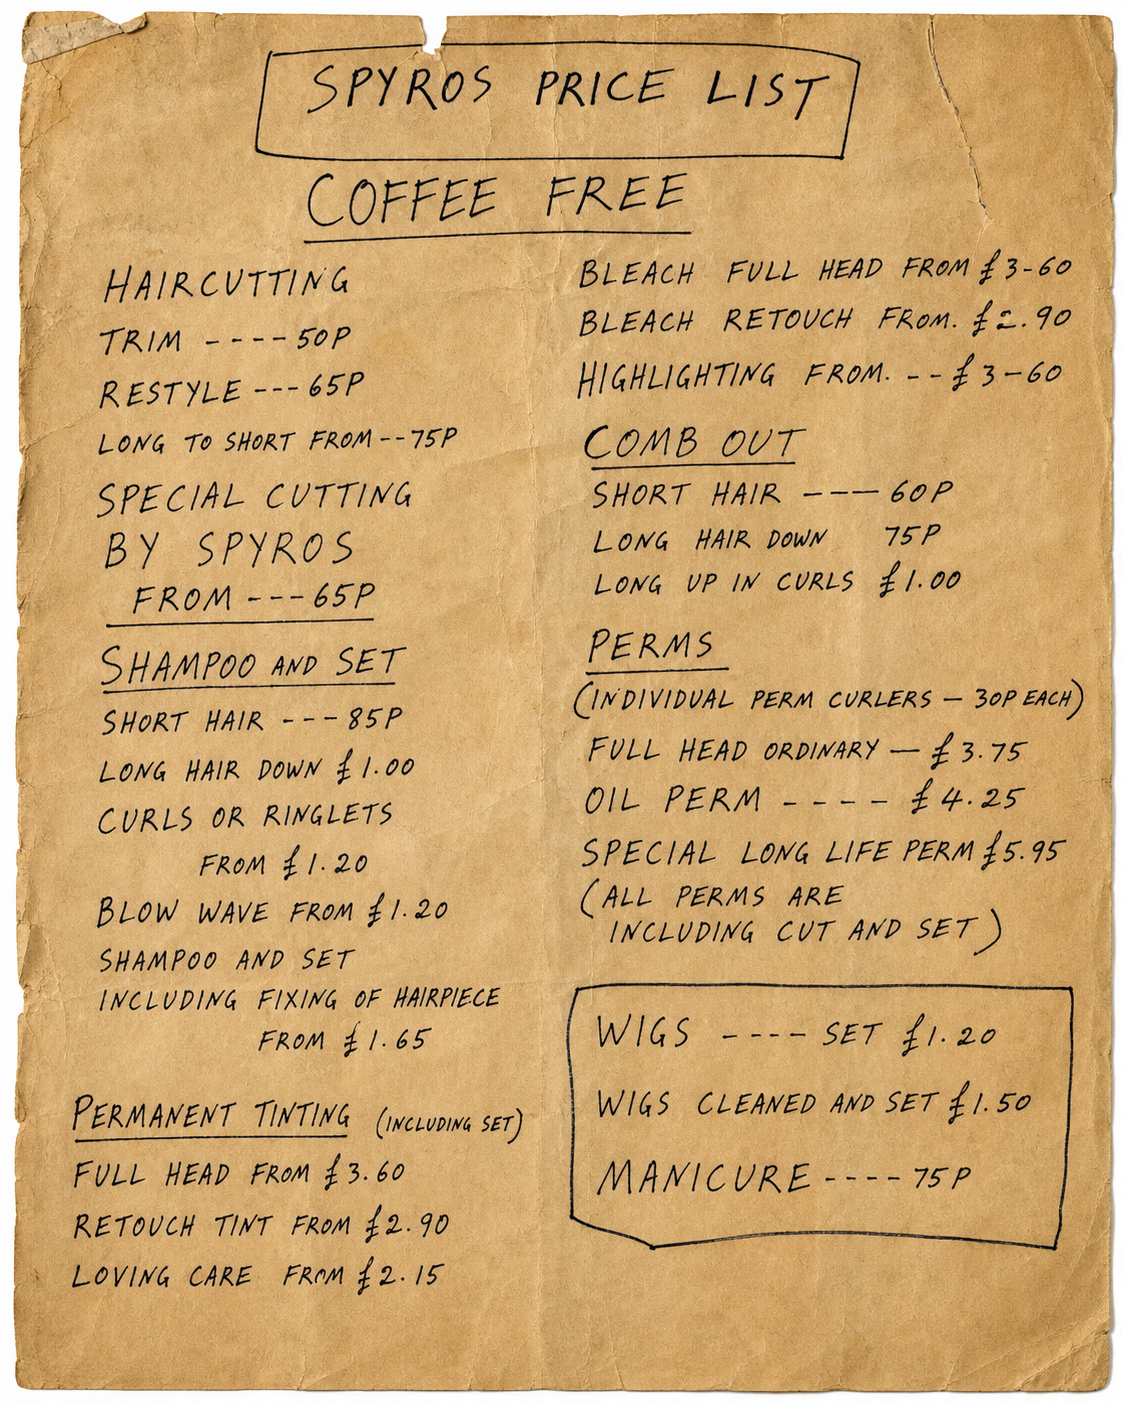 SPYROS PRICE LIST
COFFEE FREE
HAIRCUTTING
TRIM ---- 50P
RESTYLE --- 65P
LONG TO SHORT FROM -- 75P
SPECIAL CUTTING
BY SPYROS
FROM --- 65P
SHAMPOO AND SET
SHORT HAIR --- 85P
LONG HAIR DOWN £1.00
CURLS OR RINGLETS
FROM £1.20
BLOW WAVE FROM £1.20
SHAMPOO AND SET
INCLUDING FIXING OF HAIRPIECE
FROM £1.65
PERMANENT TINTING (INCLUDING SET)
FULL HEAD FROM £3.60
RETOUCH TINT FROM £2.90
LOVING CARE FROM £2.15
BLEACH FULL HEAD FROM £3-60
BLEACH RETOUCH FROM. £2.90
HIGHLIGHTING FROM. -- £3-60
COMB OUT
SHORT HAIR --- 60P
LONG HAIR DOWN 75P
LONG UP IN CURLS £1.00
PERMS
(INDIVIDUAL PERM CURLERS - 30P EACH)
FULL HEAD ORDINARY - £3.75
OIL PERM ---- £4.25
SPECIAL LONG LIFE PERM £5.95
(ALL PERMS ARE
INCLUDING CUT AND SET)
WIGS ---- SET £1.20
WIGS CLEANED AND SET £1.50
MANICURE ---- 75P